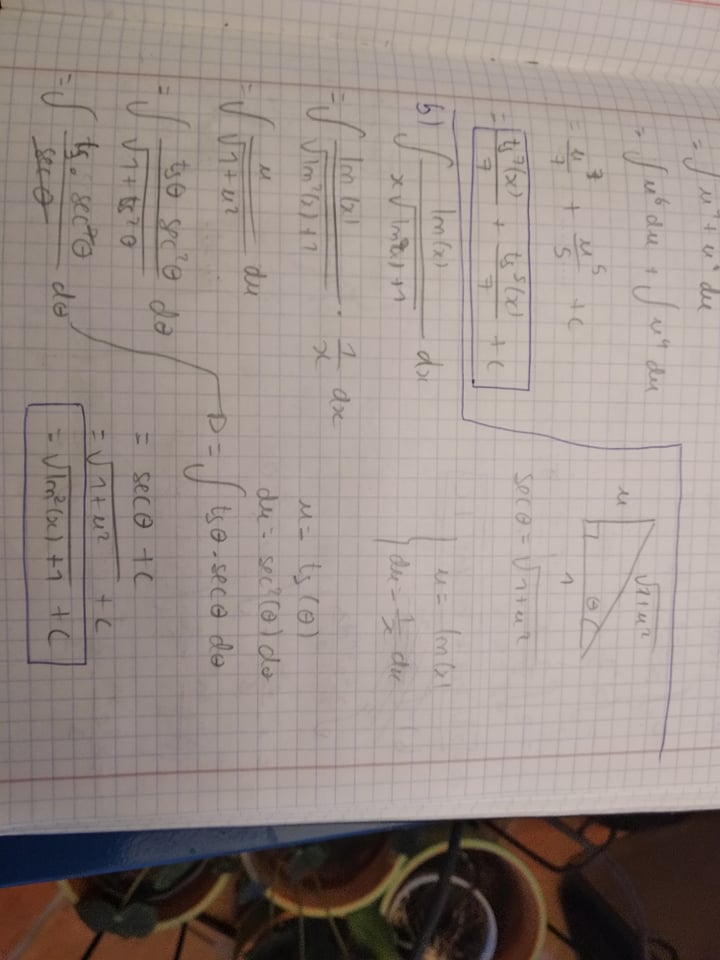 = ∫ u⁶ + u⁴ du
= ∫ u⁶ du + ∫ u⁴ du
= u⁷/7 + u⁵/5 + c
= tg⁷(x)/7 + tg⁵(x)/7 + c
u
√1+u²
θ
1
secθ = √1+u²
b) ∫ ln(x) / x√ln²(x)+1 dx
u = ln(x)
du = 1/x du
= ∫ ln(x) / √ln²(x)+1 · 1/x dx
= ∫ u / √1+u² du
= ∫ tgθ sec²θ / √1+tg²θ dθ
= ∫ tg· sec²θ / secθ dθ
u = tg(θ)
du = sec²(θ) dθ
= ∫ tgθ·secθ dθ
= secθ + c
= √1+u² + c
= √ln²(x)+1 + c